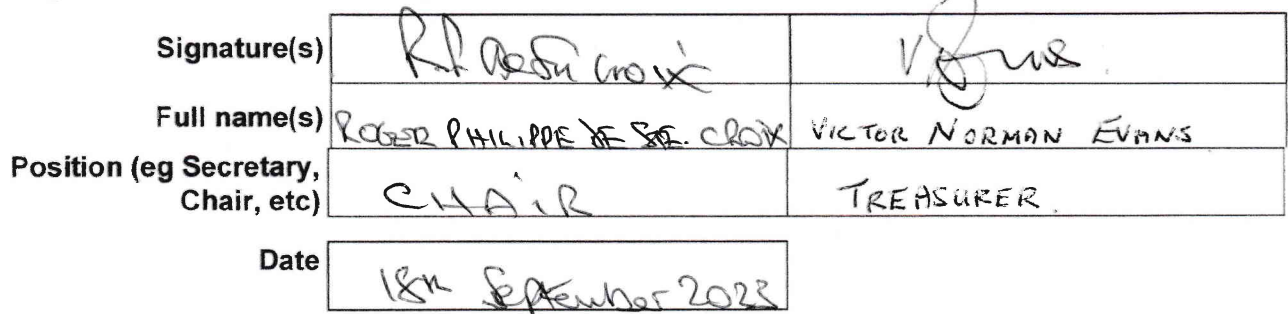 Signature(s) R.P. de Ste Croix V. Evans
Full name(s) ROGER PHILIPPE DE STE. CROIX VICTOR NORMAN EVANS
Position (eg Secretary,
Chair, etc) CHAIR TREASURER.
Date 18th September 2023